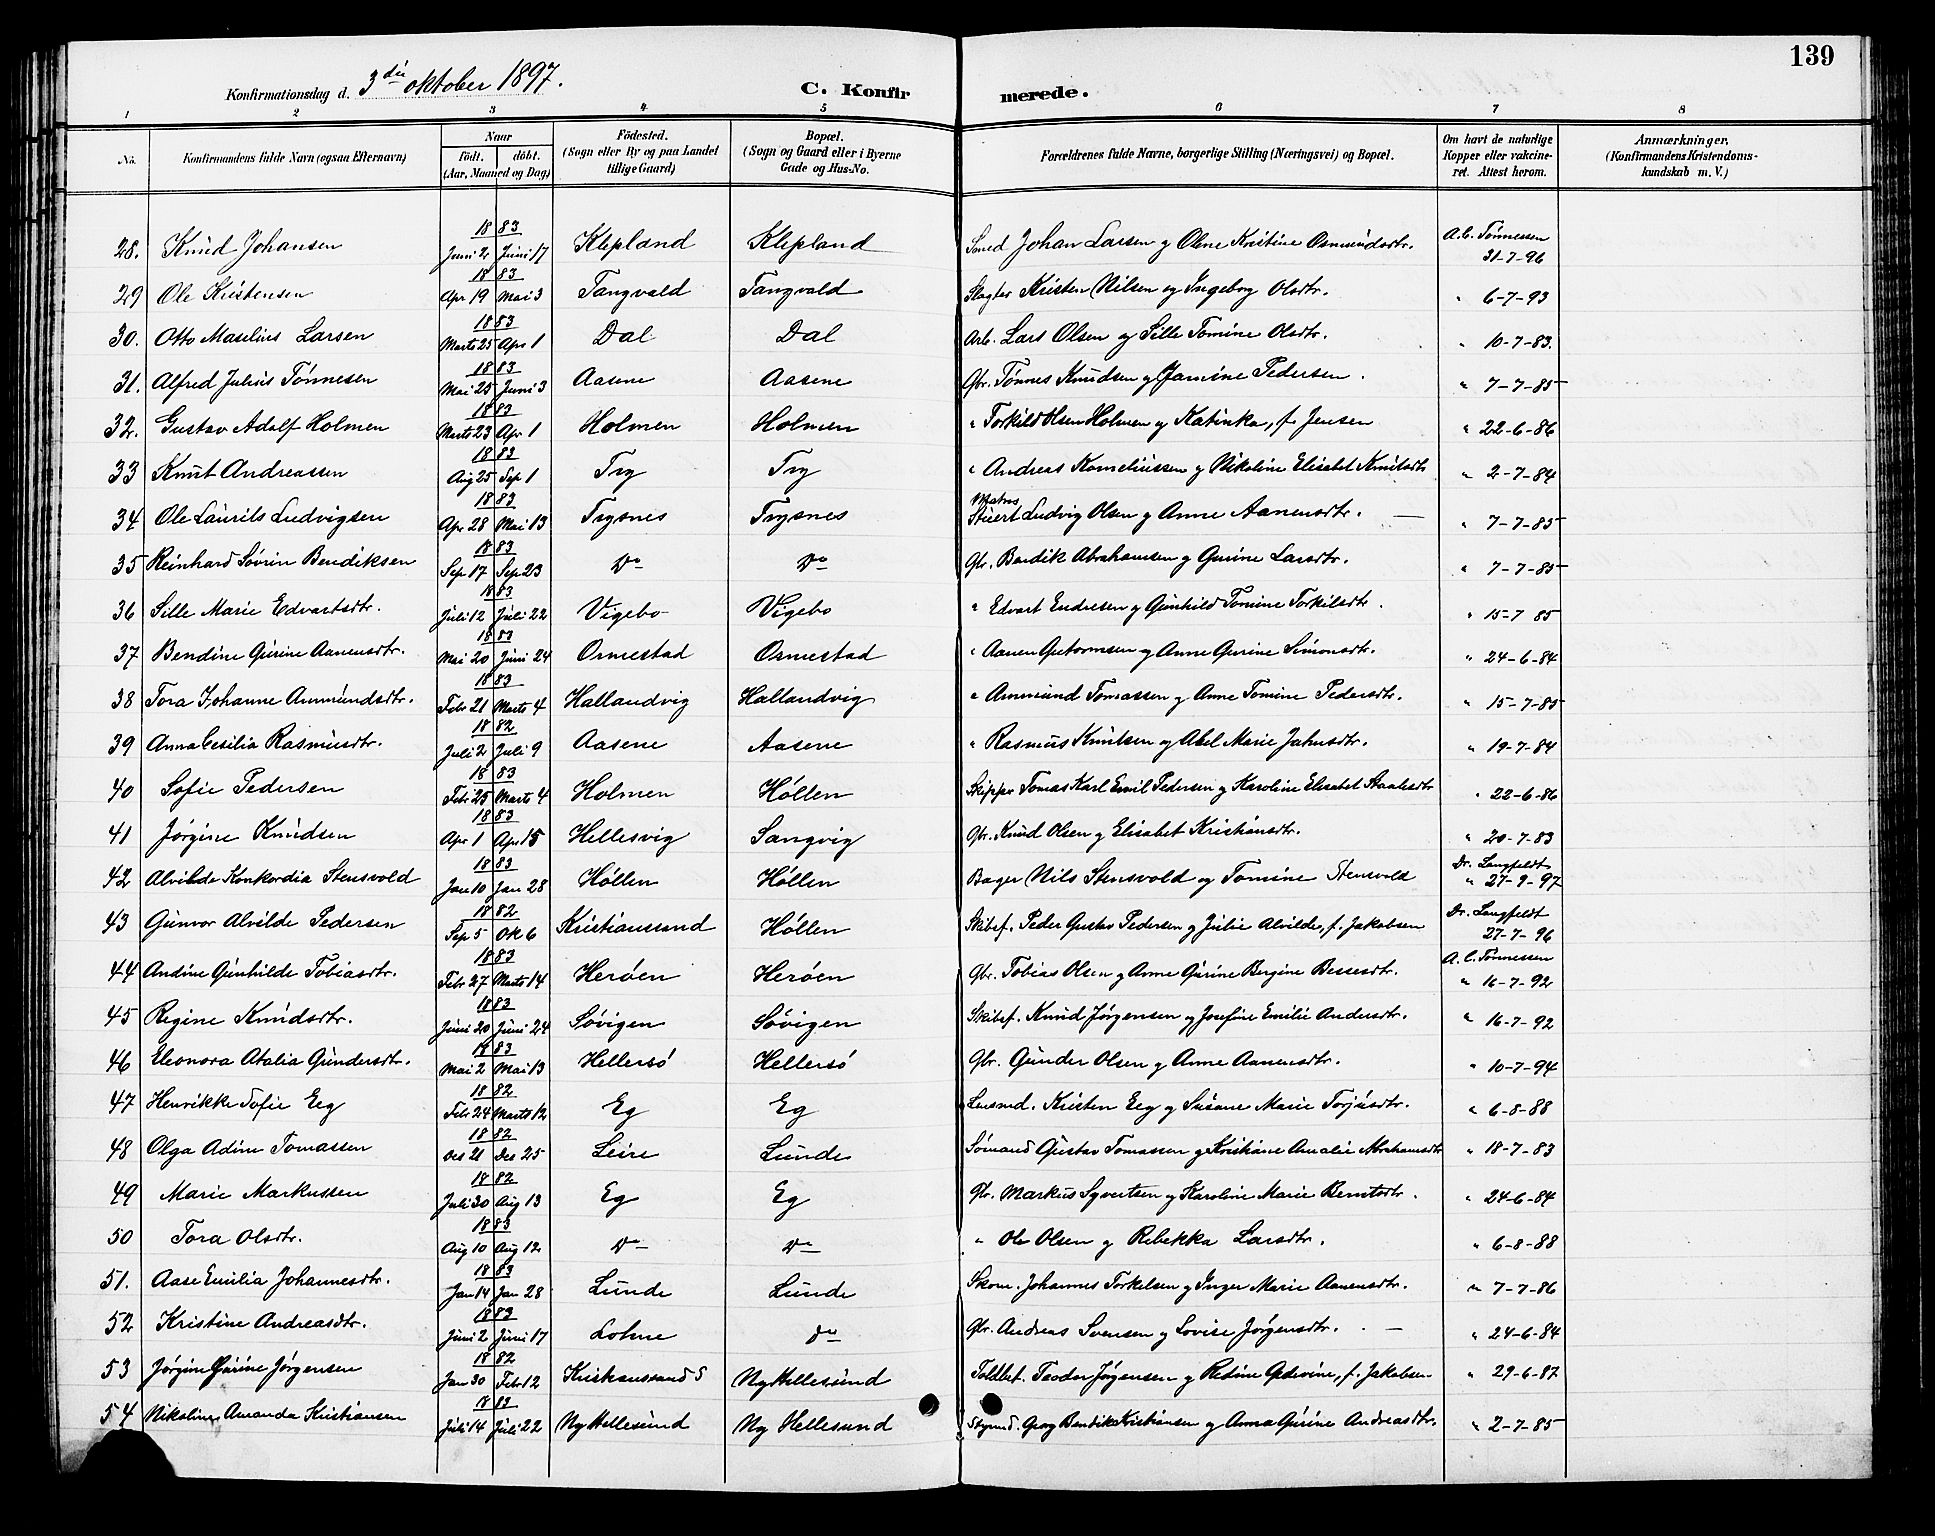 139
Konfirmationsdag d. 3die oktober 1897. C. Konfirmerede.
1 2 3 4 5 6 7 8
No. Konfirmandens fulde Navn (ogsaa Efternavn) Naar født. døbt. (Aar, Maaned og Dag) Fødested. (Sogn eller By og paa Landet tillige Gaard) Bopæl. (Sogn og Gaard eller i Byerne Gade og Hus-No. Forældrenes fulde Navne, borgerlige Stilling (Næringsvei) og Bopæl. Om havt de naturlige Kopper eller vakcineret. Attest herom. Anmærkninger, (Konfirmandens Kristendomskundskab m. V.)
28. Knud Johansen 1883 Juni 2 Juni 17 Klepland Klepland Smed Johan Larsen g Olene Kristine Osmundsdtr. A.C. Tønnessen 31-7-96
29 Ole Kristensen 1883 Apr 19 Mai 3 Tangvald Tangvald Slagter Kristen Nilsen og Ingeborg Olsdtr. " 6-7-93
30. Otto Maselius Larsen 1883 Marts 25 Apr 1 Dal Dal Arb. Lars Olsen g Sille Tomine Olsdtr. " 10-7-83.
31. Alfred Julius Tønnesen 1883 Mai 25 Juni 3 Aasene Aasene Gbr. Tønnes Knudsen g Jamine Pedersen. " 7-7-85
32. Gustav Adolf Holmen 1883 Marts 23 Apr 1 Holmen Holmen " Torkild Olsen Holmen g Katinka, f. Jensen " 22-6-86
33 Knut Andreassen 1883 Aug 25 Sep 1 Try Try " Andreas Korneliussen g Nikoline Elisabet Knutsdtr " 2-7-84
34 Ole Laurits Ludvigsen 1883 Apr 28 Mai 13 Trysnes Trysnes Matros Stuert Ludvig Olsen g Anne Aanensdtr. — " 7-7-85
35 Reinhard Søvrin Bendiksen 1883 Sep 17 Sep 23 Do Do Gbr. Bendik Abrahamsen g Gurine Larsdtr. " 7-7-85
36 Sille Marie Edvartsdtr. 1883 Juli 12 Juli 22 Vigebo Vigebo " Edvart Endresen g Gunhild Tomine Torkilsdtr. " 15-7 85
37 Bendine Gurine Aanensdtr. 1883 Mai 20 Juni 24 Ormestad Ormestad " Aanen Guttormsen g Anne Gurine Simonsdtr. " 24-6-84
38 Tora Johanne Ammundsdtr. 1883 Febr 21 Marts 4 Hallandvig Hallandvig " Ammund Tomassen g Anne Tomine Pedersdtr. " 15-7-85
39 Anna Cesilia Rasmusdtr. 1882 Juli 2 Juli 9 Aasene Aasene " Rasmus Knutsen og Abel Marie Jahnsdtr. " 19-7-84
40 Sofie Pedersen 1883 Febr 25 Marts 4 Holmen Høllen Skipper Tomas Karl Emil Pedersen g Karoline Elisabet Staalesdtr " 22-6-86
41 Jørgine Knudsen 1883 Apr 1 Apr 15 Hellesvig Sangvig Gbr. Knud Olsen g Elisabet Kristiansdtr. " 20-7-83
42 Alvilde Konkordia Stensvold 1883 Jan 10 Jan 28 Høllen Høllen Bager Nils Stensvold og Tomine Stensvold Dr. Langfeldt " 27-9-97
43 Gunvor Alvilde Pedersen 1882 Sep 5 Ok 6 Kristianssand Høllen Skibsf. Peder Gustav Pedersen g Julie Alvilde, f. Jakobsen Dr. Langfeldt 27-7-96
44 Andine Gunhilde Tobiasdtr. 1883 Febr 27 Marts 14 Herøen Herøen Gbr. Tobias Olsen g Anne Gurine Bergine Bessesdtr. A.C. Tønnessen " 16-7-92
45 Regine Knudsdtr. 1883 Juni 20 Juni 24 Søvigen Søvigen Skibsf. Knud Jørgensen g Josefine Emilie Andersdtr. " 16-7-92
46 Eleonora Atalia Gundersdtr. 1883 Mai 2 Mai 13 Hellersø Hellersø Gbr. Gunder Olsen g Anne Aanensdtr. " 10-7-94
47 Henrikke Sofie Eeg 1882 Febr 24 Marts 12 Eg Eg Lensmd. Kristen Eeg g Susane Marie Torjusdtr. " 6-8-88
48 Olga Adine Tomassen 1882 Des 21 Des 25 Leire Lunde Sømand Gustav Tomassen g Kristiane Amalie Abrahamsdtr " 18-7-83
49 Marie Markussen 1882 Juli 30 Aug 13 Eg Eg Gbr. Markus Syvertsen g Karoline Marie Berntsdtr. " 24-6-84
50 Tora Olsdtr. 1883 Aug 10 Aug 12 Do Do " Ole Olsen g Rebekka Larsdtr. " 6-8-88
51. Aase Emilia Johannesdtr. 1883 Jan 14 Jan 28 Lunde Lunde Skom. Johannes Torkelsen g Inger Marie Aanensdtr. " 7-7-86
52 Kristine Andreasdtr. 1883 Juni 2 Juni 17 Lohne do Gbr. Andreas Svensen g Lovise Jørgensdtr. — " 24-6-84
53 Jørgine Gurine Jørgensen 1882 Jan 30 Febr 12 Kristianssand S Ny Hellesund Toldbet. Teodor Jørgensen g Petine, f. Jakobsen " 29-6-87
54 Nikoline Amanda Kristiansen 1883 Juli 14 Juli 22 Ny Hellesund Ny Hellesund Styrmd. Georg Bendik Kristiansen g Anna Gurine Andreasdtr. " 2-7-85